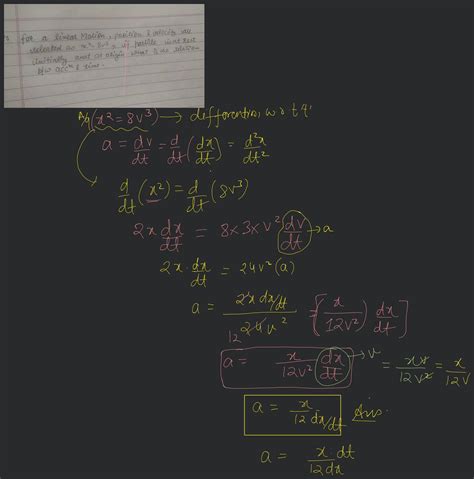 for a linear Motion, position & velocity are
related as x² = 8v³ if particle is at rest
initially and at origin what is the relation
b/w accⁿ & time.
A/q (x² = 8v³) → differentiate, w.r.t 't'
a = dv/dt = d/dt (dx/dt) = d²x/dt²
d/dt (x²) = d/dt (8v³)
2x dx/dt = 8×3×v² (dv/dt) → a
2x · dx/dt = 24v² (a)
a = 2x dx/dt / 24v² = [(x/12v²) dx/dt]
12
a = x/12v² (dx/dt) → v = xv/12v² = x/12v
a = x/12 dx/dt Ans.
a = x · dt/12 dx